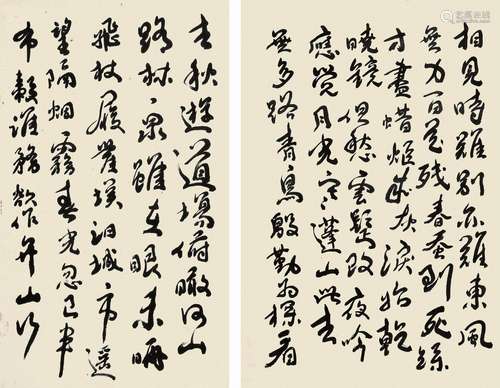 相見時難別亦難東風
無力百花残春蚕到死絲
方盡蜡炬成灰淚始乾
曉鏡但愁雲鬢改夜吟
應覺月光寒蓬山此去
無多路青鳥殷勤為探看
去秋遊道場俯瞰何山
路林泉雖在眼未晤
飛杖履塵埃汩城市遥
望隔烟霧春光忽已半
布穀誰務欲作弁山行